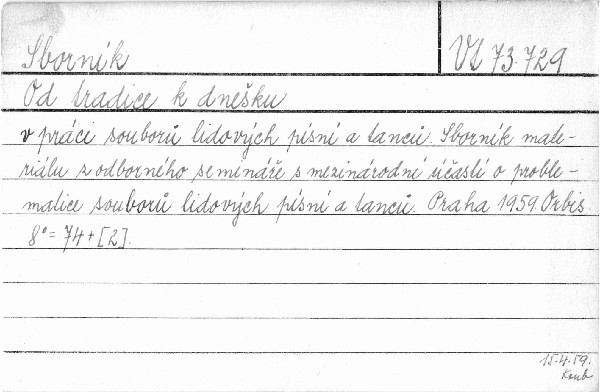 Sborník
Vl 73.729
Od tradice k dnešku
v práci souborů lidových písní a tanců. Sborník mate-
riálu z odborného semináře s mezinárodní účastí o proble-
matice souborů lidových písní a tanců. Praha 1959 Orbis.
8° = 74 + [2].
15.4.59.